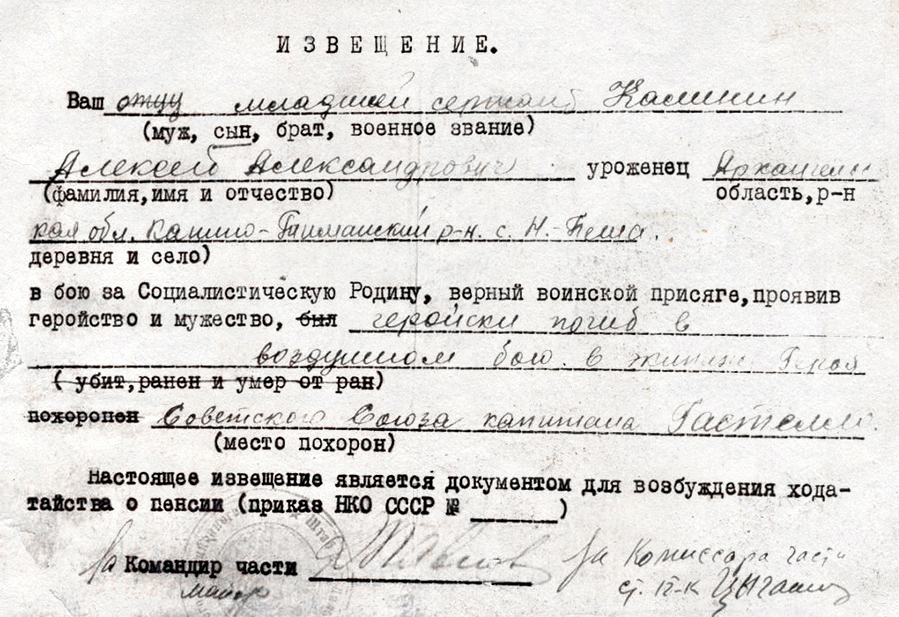 ИЗВЕЩЕНИЕ.
Ваш отцу младший сержант Калинин
(муж, сын, брат, военное звание)
Алексей Александрович уроженец Архангельс
(фамилия,имя и отчество) область,р-н
кая обл. р-н. с. Н-Пеша.
деревня и село)
в бою за Социалистическую Родину, верный воинской присяге,проявив
геройство и мужество, был геройски погиб в
воздушном бою. в экипаже Героя
( убит,ранен и умер от ран)
похоронен Советского Союза капитана Гастелло.
(место похорон)
Настоящее извещение является документом для возбуждения хода-
тайства о пенсии (приказ НКО СССР № )
Штаб
За Командир части За Комиссара части
майор ст. п-к